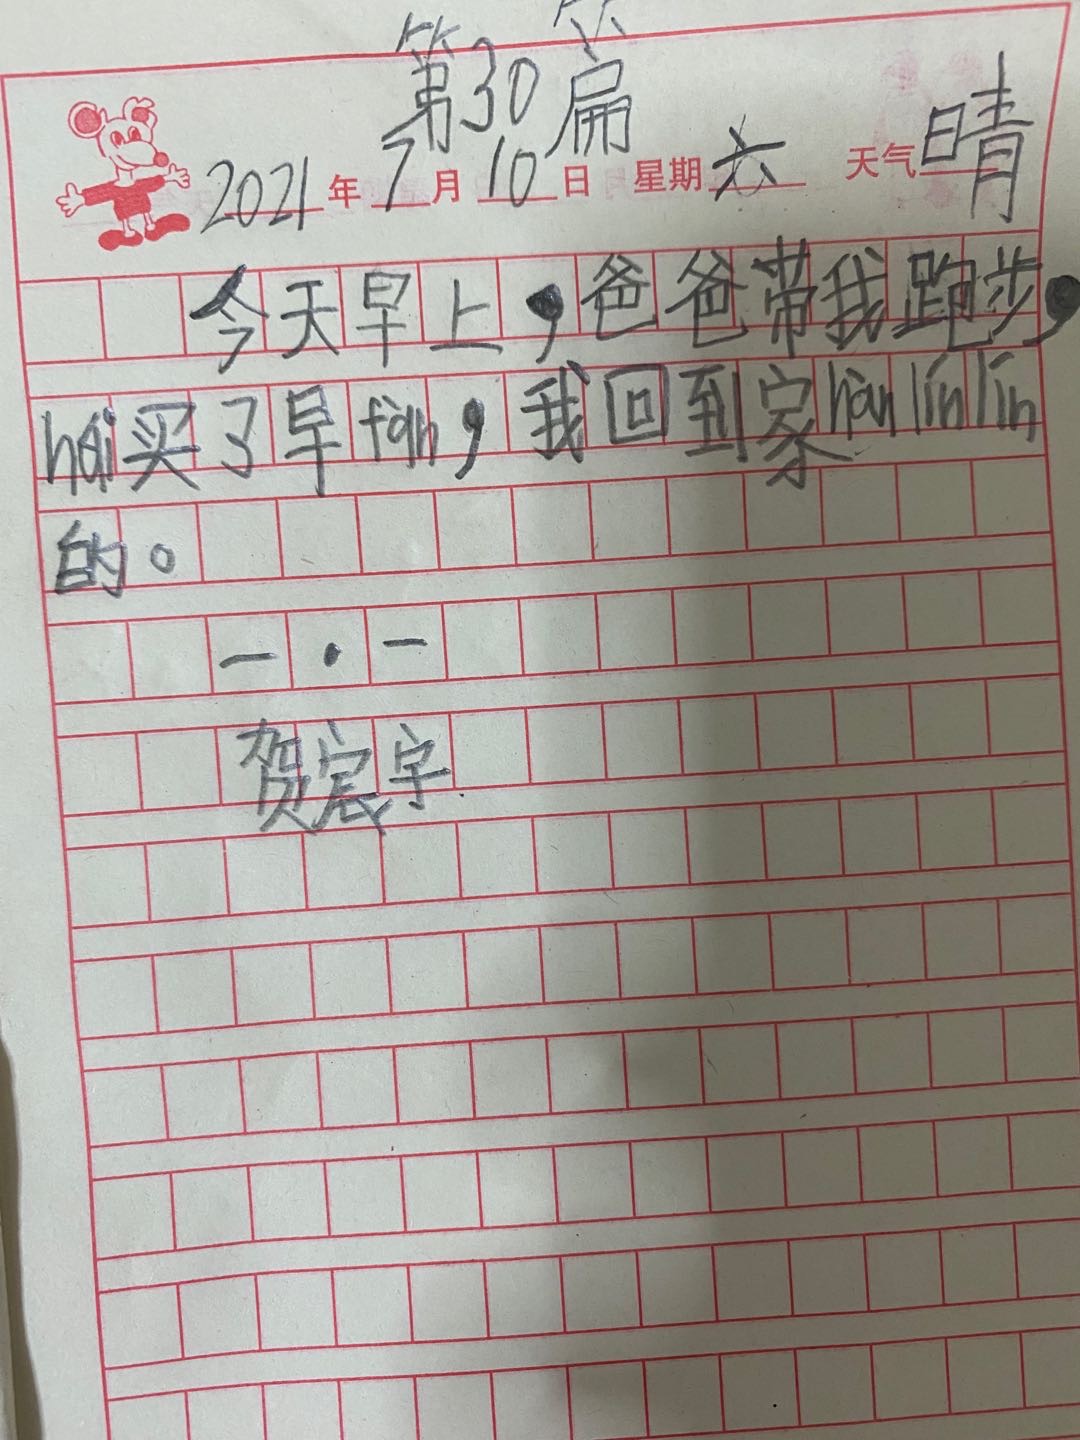 第30篇
2021年7月10日 星期六 天气晴
今天早上，爸爸带我跑步，
hái买了早fàn，我回到家hàn lín lín
的。
一·一
贺宸宇